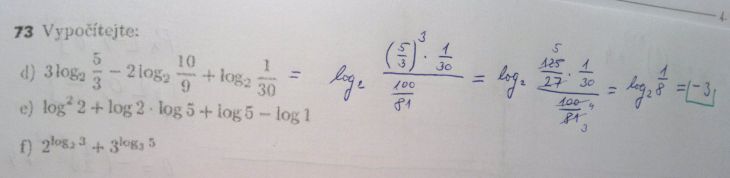 4
73 Vypočítejte:
d) 3 log₂ 5/3 − 2 log₂ 10/9 + log₂ 1/30 = log₂ ((5/3)³ · 1/30)/(100/81) = log₂ (125/27 · 1/30)/(100/81) 5 4 3 = log₂ 1/8 = -3
e) log² 2 + log 2 · log 5 + log 5 − log 1
f) 2^(log₂ 3) + 3^(log₃ 5)